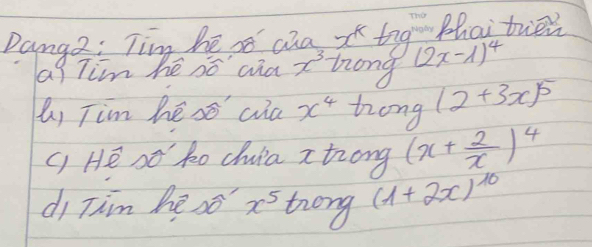 Dạng 2: Tìm hệ số của x^k trg khai triển
a) Tìm hệ số của x³ trong (2x-1)⁴
b) Tìm hệ số của x⁴ trong (2+3x)⁵
c) Hệ số ko chứa x trong (x + 2/x)⁴
d) Tìm hệ số x⁵ trong (1+2x)¹⁰